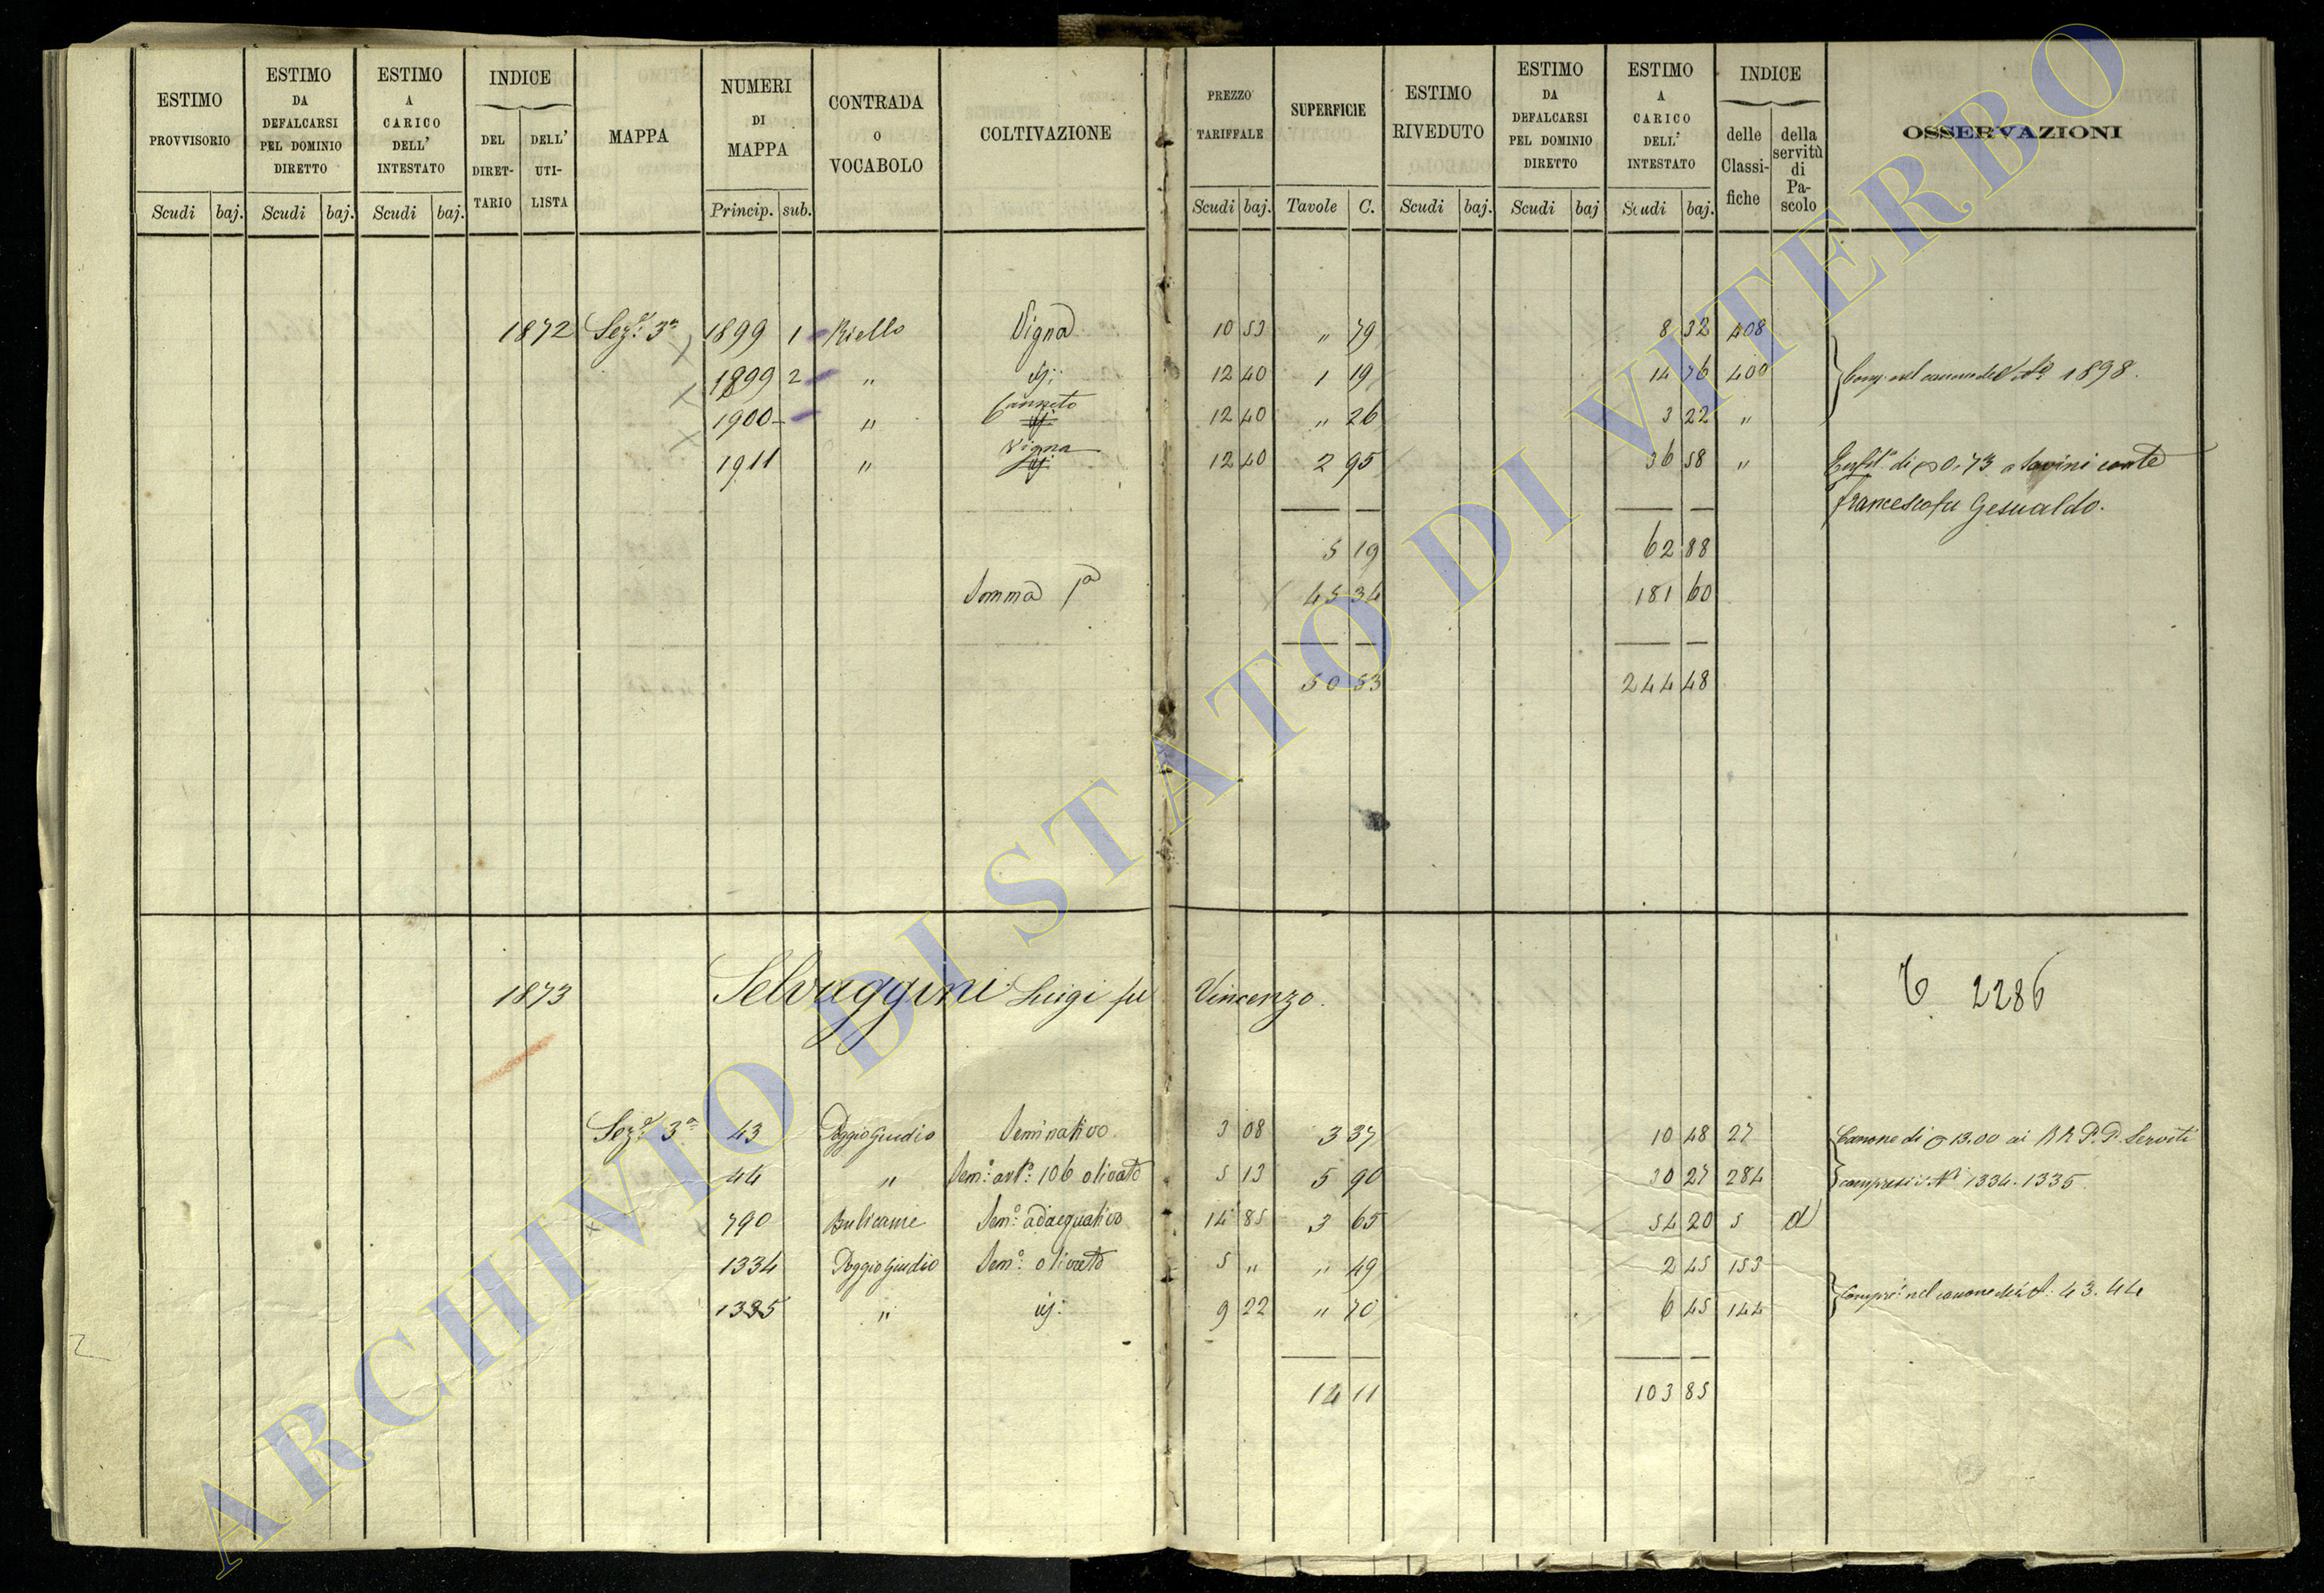 ESTIMO PROVVISORIO Scudi baj.
ESTIMO DA DEFALCARSI PEL DOMINIO DIRETTO Scudi baj.
ESTIMO A CARICO DELL' INTESTATO Scudi baj.
INDICE DEL DIRET-TARIO DELL' UTI-LISTA
MAPPA
NUMERI DI MAPPA Princip. sub.
CONTRADA o VOCABOLO
COLTIVAZIONE
PREZZO TARIFFALE Scudi baj.
SUPERFICIE Tavole C.
ESTIMO RIVEDUTO Scudi baj.
ESTIMO DA DEFALCARSI PEL DOMINIO DIRETTO Scudi baj
ESTIMO A CARICO DELL' INTESTATO Scudi baj.
INDICE delle Classi-fiche della servitù di Pa-scolo
OSSERVAZIONI
1872 Sez.e 3a 1899 1 Riello Vigna 10 53 " 79 8 32 408
1899 2 " id: 12 40 1 19 14 76 400 nel canone del No 1898.
1900 - " Canneto 12 40 " 26 3 22 "
1911 " Vigna 12 40 2 95 36 58 " Enfit. di 0.73 a Savini conte
Francesco fu Gesualdo.
5 19 62 88
Somma 1a 45 34 181 60
50 53 244 48
1873 Selvaggini Luigi fu Vincenzo. 2286
Sez.e 3a 43 Poggio Giudio Seminativo. 3 08 3 37 10 48 27 Canone di 13.00 ai RR. P.P. Serviti
44 " Sem.o 106 olivato 5 13 5 90 30 27 284 compresi i Ni 1334. 1335
790 Bulicame Sem.o adacquativo 14 85 3 65 54 20 5 d
1334 Poggio Giudio Sem.o olivato 5 " " 49 2 45 153
1335 " id: 9 22 " 70 6 45 144 nel canone 43. 44
14 11 103 85
ARCHIVIO DI STATO DI VITERBO